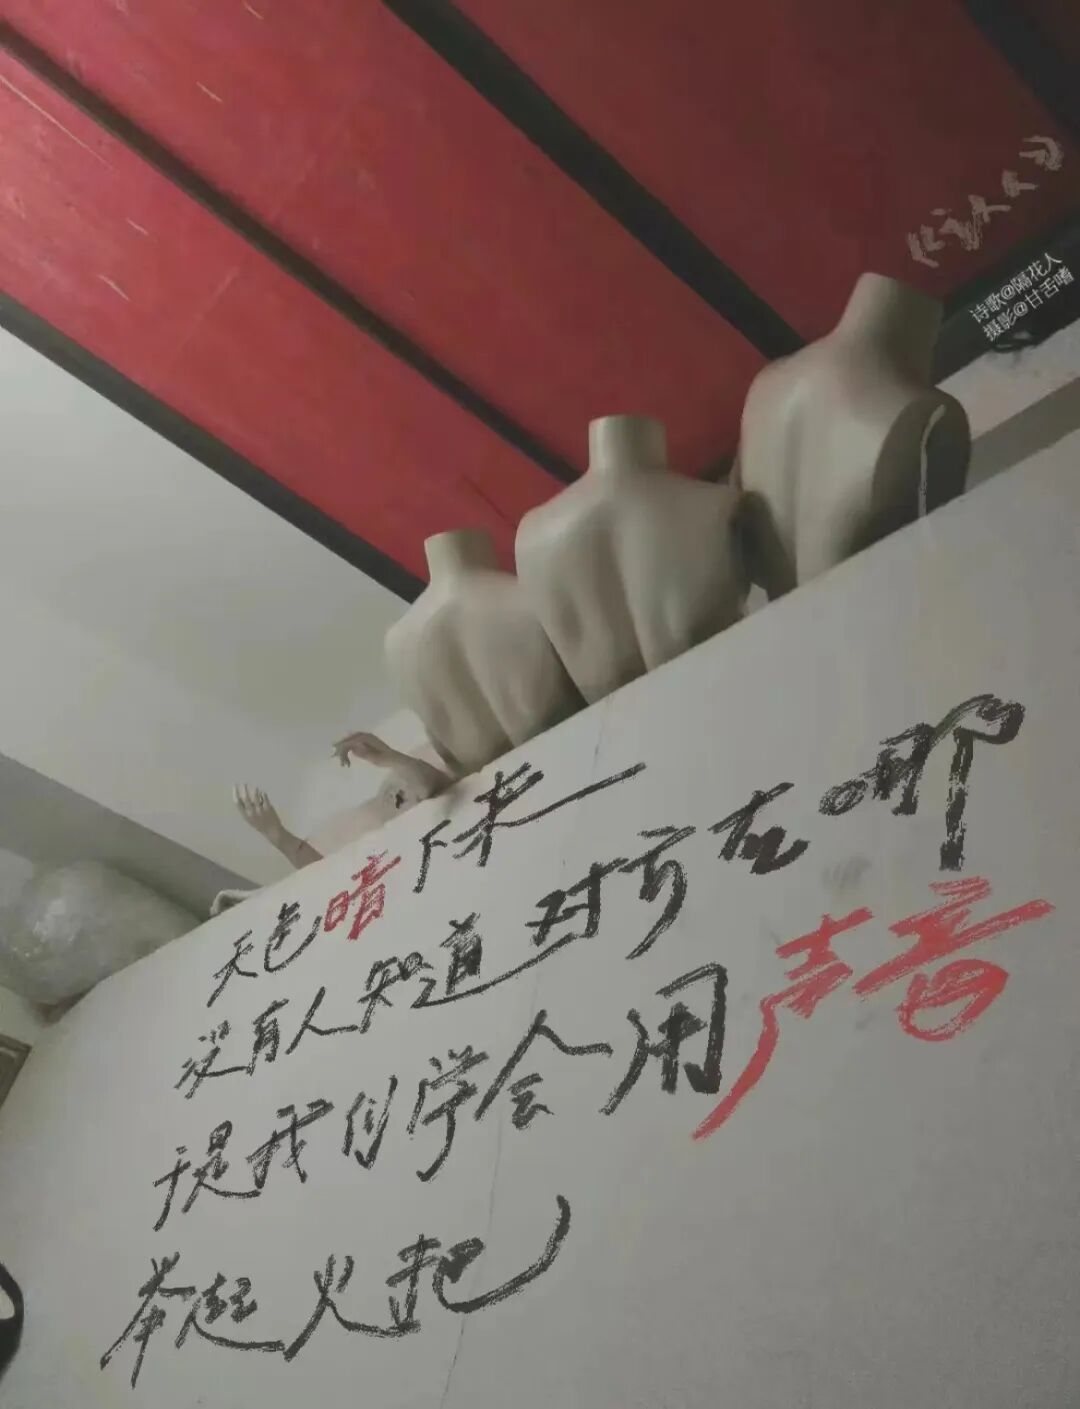 诗歌@隔花人
摄影@甘舌嗜
天色暗下来
没有人知道对方在哪
于是我们学会用声音
举起火把